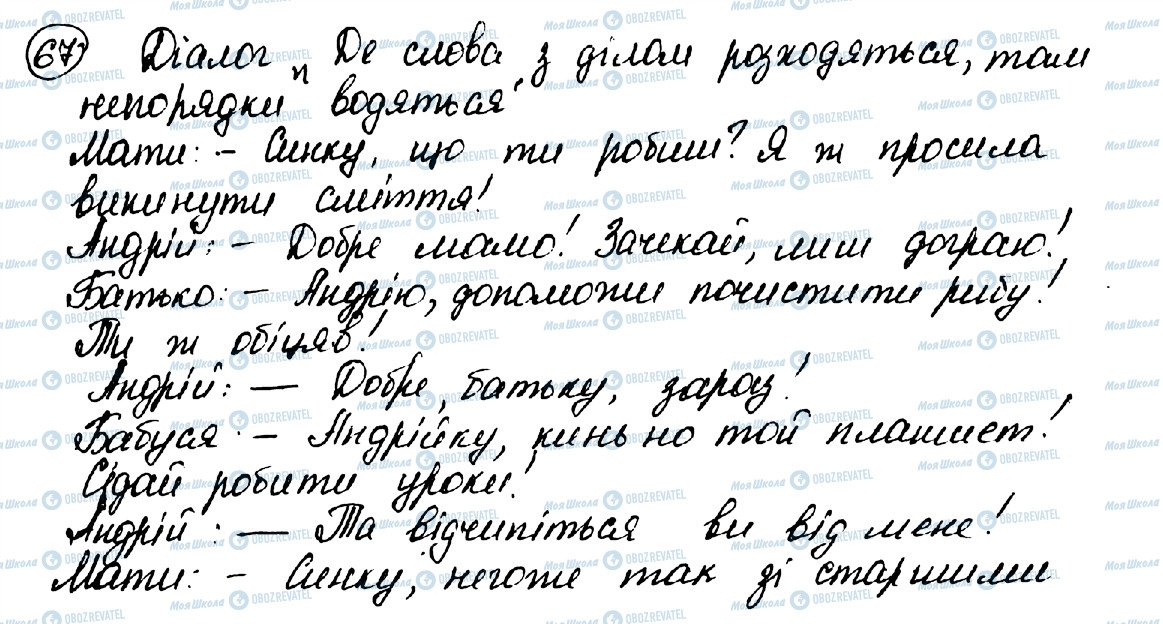 67 Діалог „Де слова з ділом розходяться, там
непорядки водяться"
Мати: – Синку, що ти робиш? Я ж просила
викинути сміття!
Андрій: – Добре мамо! Зачекай, лиш дограю!
Батько: – Андрію, допоможи почистити рибу!
Ти ж обіцяв!
Андрій: — Добре, батьку, зараз!
Бабуся – Андрійку, кинь но той планшет!
Сідай робити уроки!
Андрій: — Та відчипіться ви від мене!
Мати: – Синку, негоже так зі старшими